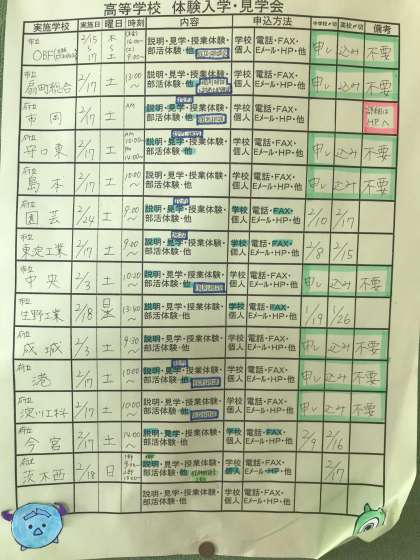 高等学校 体験入学・見学会
実施学校 実施日 曜日 時刻 内容 申込方法 中学校〆切 高校〆切 備考
市立 OBF 2/15 木 説明・見学・授業体験・ 学校 電話・FAX・ 申し込み 不要
〜 〜 部活体験・他 個人 Eメール・HP・他
2/17 土
市立 扇町総合 2/17 土 13:00 説明・見学・授業体験・ 学校 電話・FAX・ 申し込み 不要
〜 部活体験・他 個人 Eメール・HP・他
府立 市岡 2/17 土 AM 説明・見学・授業体験・ 学校 電話・FAX・ 詳細は
部活体験・他 個人 Eメール・HP・他 HPへ
府立 守口東 2/17 土 説明・見学・授業体験・ 学校 電話・FAX・ 申し込み 不要
部活体験・他 個人 Eメール・HP・他
府立 島本 2/17 土 10:00 説明・見学・授業体験・ 学校 電話・FAX・ 申し込み 不要
〜 部活体験・他 個人 Eメール・HP・他
府立 園芸 2/24 土 9:00 説明・見学・授業体験・ 学校 電話・FAX・ 2/10 2/17
〜 部活体験・他 個人 Eメール・HP・他
市立 東淀工業 2/17 土 9:00 説明・見学・授業体験・ 学校 電話・FAX・ 2/8 2/15
〜 部活体験・他 個人 Eメール・HP・他
市立 中央 2/3 土 説明・見学・授業体験・ 学校 電話・FAX・ 申し込み 不要
〜 部活体験・他 個人 Eメール・HP・他
市立 生野工業 2/18 日 13:40 説明・見学・授業体験・ 学校 電話・FAX・ 1/19 1/26
〜 部活体験・他 個人 Eメール・HP・他
府立 成城 2/17 土 9:30 説明・見学・授業体験・ 学校 電話・FAX・ 申し込み 不要
〜 部活体験・他 個人 Eメール・HP・他
府立 港 2/17 土 10:00 説明・見学・授業体験・ 学校 電話・FAX・ 申し込み 不要
〜 部活体験・他 個人 Eメール・HP・他
府立 淀川工科 2/17 土 10:00 説明・見学・授業体験・ 学校 電話・FAX・ 申し込み 不要
〜 部活体験・他 個人 Eメール・HP・他
府立 今宮 2/17 土 14:00 説明・見学・授業体験・ 学校 電話・FAX・ 2/9 2/16
〜 部活体験・他 個人 Eメール・HP・他
府立 茨木西 2/18 日 説明・見学・授業体験・ 学校 電話・FAX・ 2/17
部活体験・他 個人 Eメール・HP・他